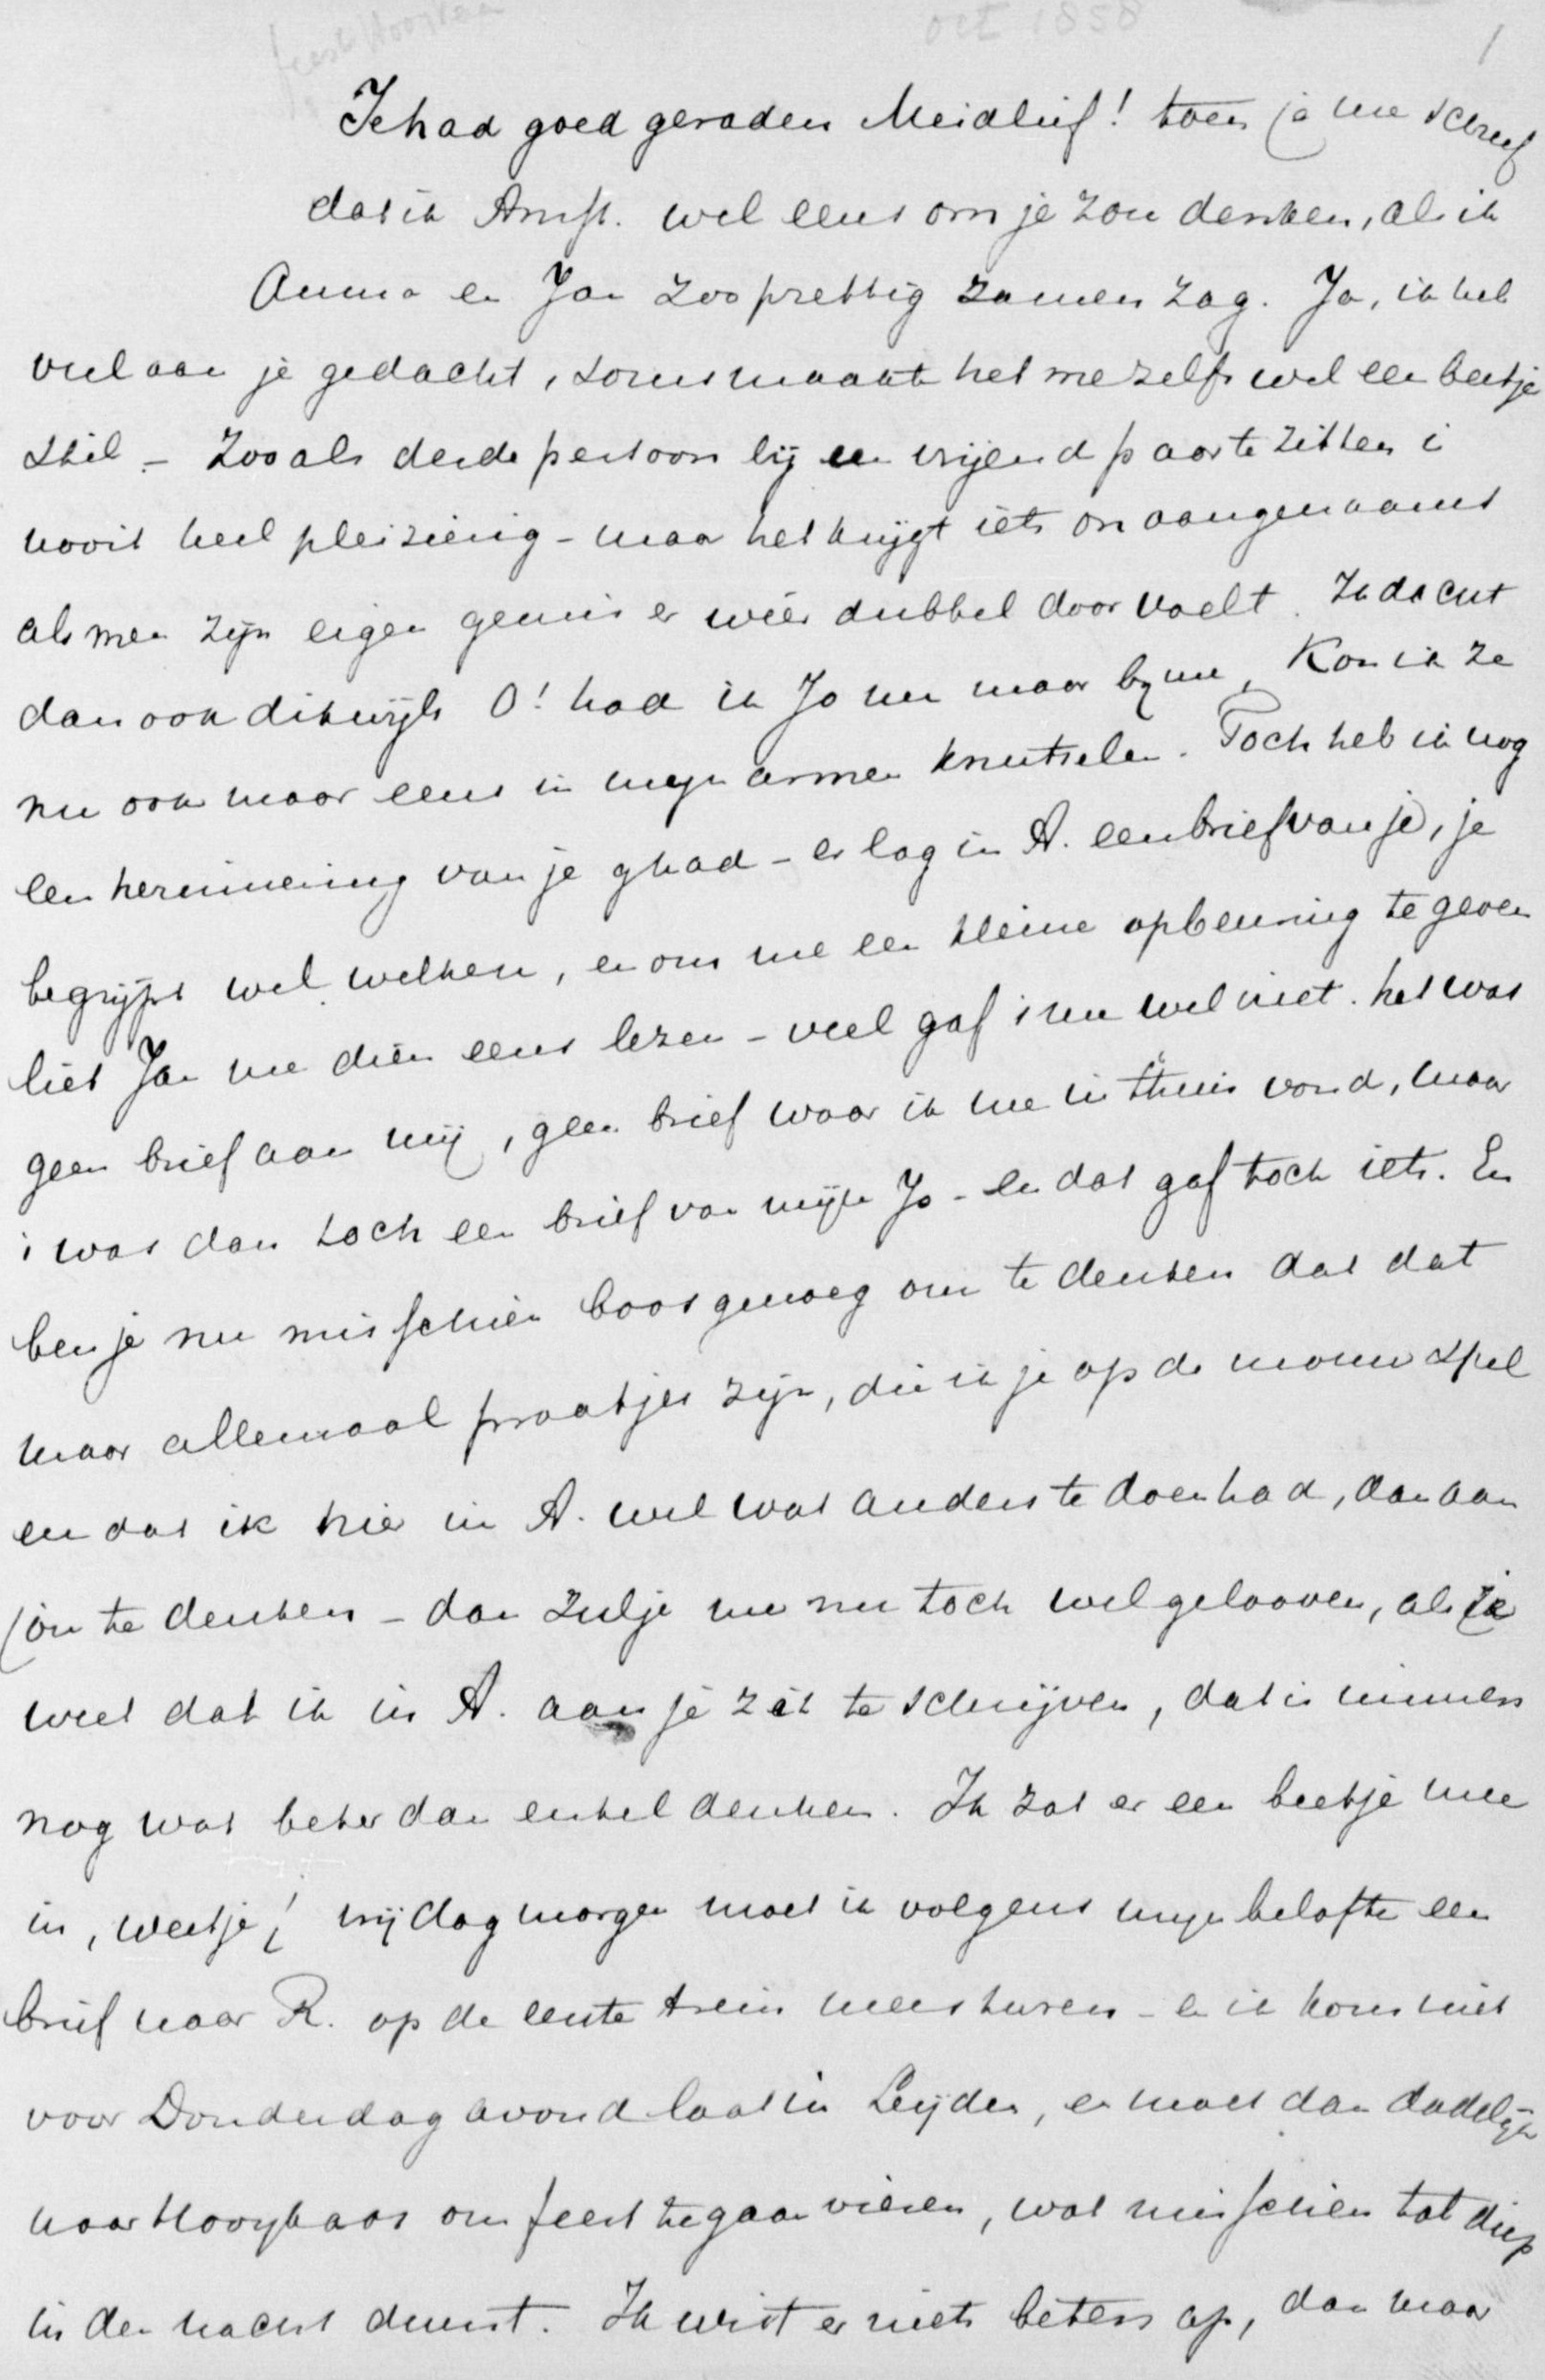 oct 1858
1
Je had goed geraden Meidlief! toen je me schreef
dat ik Amst. wel eens om je zou denken, als ik
Anna en Jan zoo prettig zamen zag. Ja, ik heb
veel aan je gedacht, soms maakte het me zelfs wel een beetje
stil. – Zoo als derde persoon bij een vrijend paar te zitten is
nooit heel pleizierig – maar het krijgt iets onaangenaams
als men zijn eigen gemis er wéér dubbel door voelt. Ik dacht
dan ook dikwijls O! had ik Jo nu maar by me, Kon ik ze
nu ook maar eens in myn armen knutselen. Toch heb ik nog
een herinnering van je ghad – er lag in A. een brief van je, je
begrijpt wel welken, en om me een kleine opbeuring te geven
liet Jan me dien eens lezen – veel gaf i me wel niet. het was
geen brief aan mij, geen brief waar ik me in thuis vond, maar
i was dan toch een brief van mijn Jo – en dat gaf toch iets. En
ben je nu misschien boos genoeg om te denken dat dat
maar allemaal praatjes zijn, die ik je op de mouw spel
en dat ik hier in A. wel wat anders te doen had, dan aan
jou te denken – dan zulje me nu toch wel gelooven, als je
weet dat ik in A. aan je zit te schrijven, dat is immers
nog wat beter dan enkel denken. Ik zat er een beetje mee
in, weetje! vrijdagmorgen moet ik volgens myn belofte een
brief naar R. op de eerste trein meesturen – en ik kom niet
voor Donderdag avond laat in Leijden, en moet dan dadelijk
naar Hooykaas om feest te gaan vieren, wat misschien tot diep
in den nacht duurt. Ik wist er niets beters op, dan maar